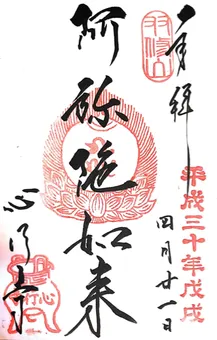 奉拝
平成三十年戊戌
四月廿一日
阿弥陀如来
心行寺
心行